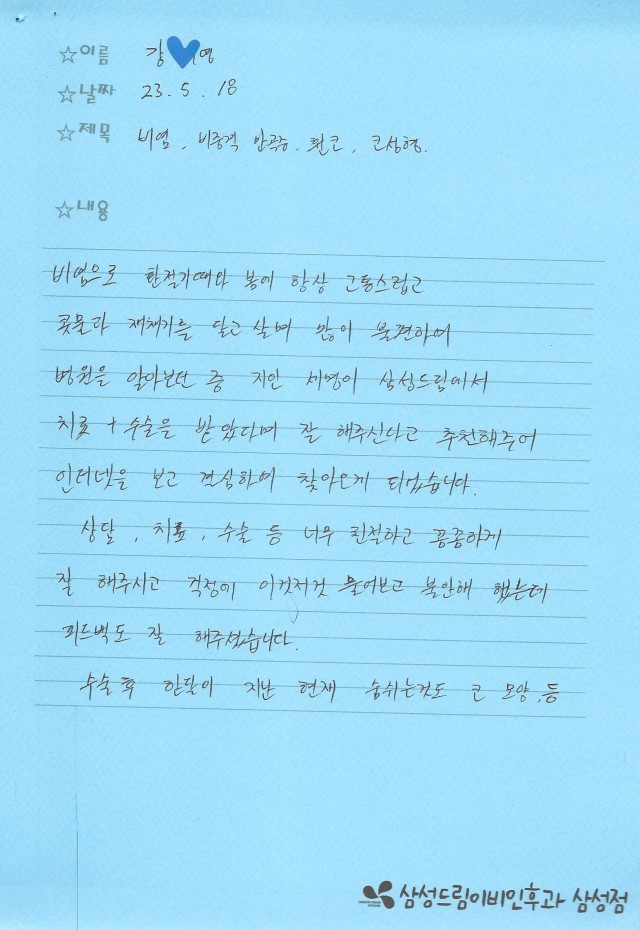 ☆이름 강💙영
☆날짜 23. 5. 18
☆제목 비염, 비중격 만곡증, 휜코, 코성형.
☆내용
비염으로 환절기때와 봄에 항상 고통스럽고
콧물과 재채기를 달고 살며 많이 불편하여
병원을 알아보던 중 지인 세명이 삼성드림에서
치료 + 수술을 받았다며 잘 해주신다고 추천해주어
인터넷을 보고 결심하여 찾아오게 되었습니다.
상담, 치료, 수술 등 너무 친절하고 꼼꼼하게
잘 해주시고 걱정에 이것저것 물어보고 불안해 했는데
피드백도 잘 해주셨습니다.
수술 후 한달이 지난 현재 숨쉬는것도 코 모양, 등
삼성드림이비인후과 삼성점